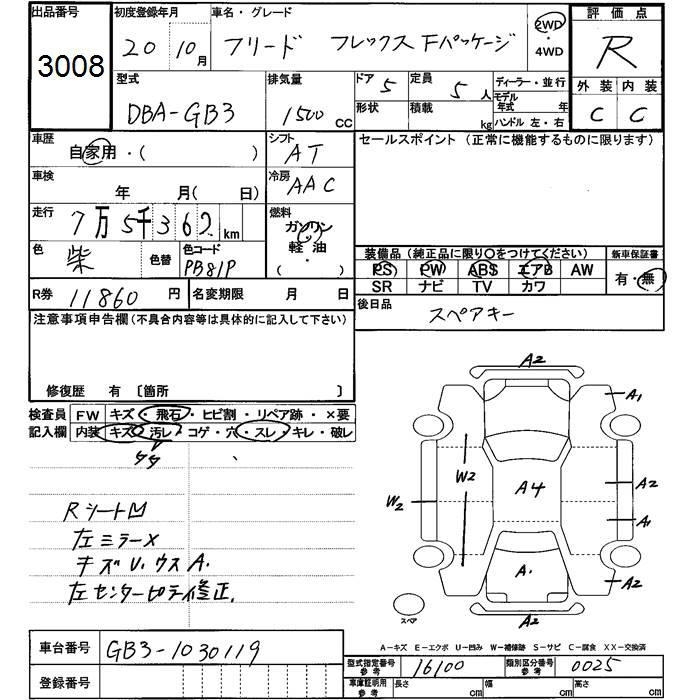 出品番号
3008
初度登録年月
20 10月
車名・グレード
フリード フレックス Fパッケージ
2WD
・
4WD
評価点
R
外装 内装
C C
型式
DBA-GB3
排気量
1500 CC
ドア 5
定員 5人
形状
積載 kg
ディーラー・並行
モデル年式 年
ハンドル 左・右
車歴
自家用・( )
シフト
AT
セールスポイント (正常に機能するものに限ります)
車検
年 月( 日)
冷房
AAC
走行
7万5千362 km
燃料
ガソリン
軽油
( ・ )
色
柴
色替
色コード
PB81P
装備品 (純正品に限り○をつけてください)
PS PW ABS エアB AW
SR ナビ TV カワ
新車保証書
有・無
R券 11860 円
名変期限 月 日
後日品
スペアキー
注意事項申告欄 (不具合内容等は具体的に記入して下さい)
修復歴 有 〔箇所 〕
検査員
記入欄
FW キズ・飛石・ヒビ割・リペア跡・×要
内装 キズ・汚レ・コゲ・穴・スレ・キレ・破レ
Rシート凹
左ミラーX
キズU.ウスA.
左センターピラー修正.
A2
A1
W2
A4
A2
W2
A1
A.
A2
A2
スペア
A-キズ E-エクボ U-凹み W-補修跡 S-サビ C-腐食 XX-交換済
車台番号
GB3-1030119
登録番号
型式指定番号
参考
16100
類別区分番号
参考
0025
車庫証明用
参考
長さ cm
幅 cm
高さ cm